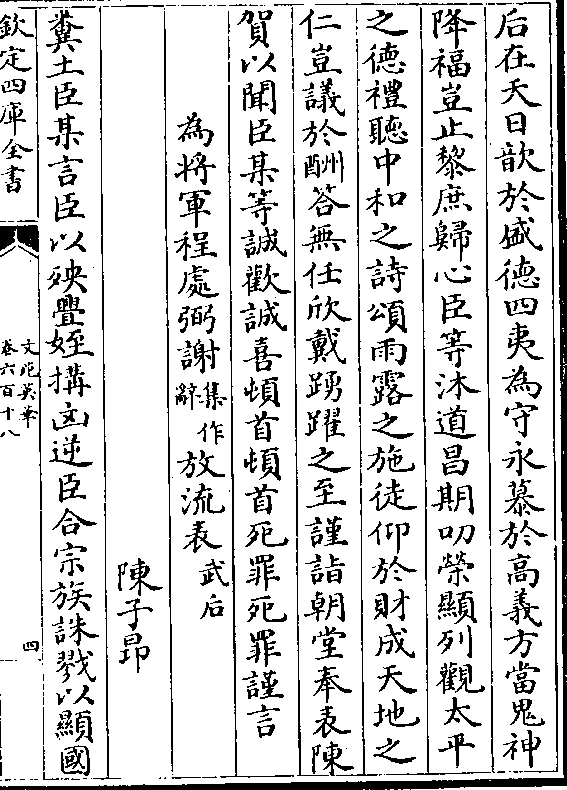 后在天日歆於盛德四夷為守永慕於高義方當鬼神
降福豈止黎庶歸心臣等沐道昌期叨榮顯列觀太平
之德禮聽中和之詩頌雨露之施徒仰於財成天地之
仁豈議於酬答無任欣戴踴躍之至謹詣朝堂奉表陳
賀以聞臣某等誠歡誠喜頓首頓首死罪死罪謹言
為將軍程處弼謝集作辭放流表武后
陳子昻
糞土臣某言臣以殃舋姪搆凶逆臣合宗族誅戮以顯國
欽定四庫全書
文苑英華
卷六百十八
四